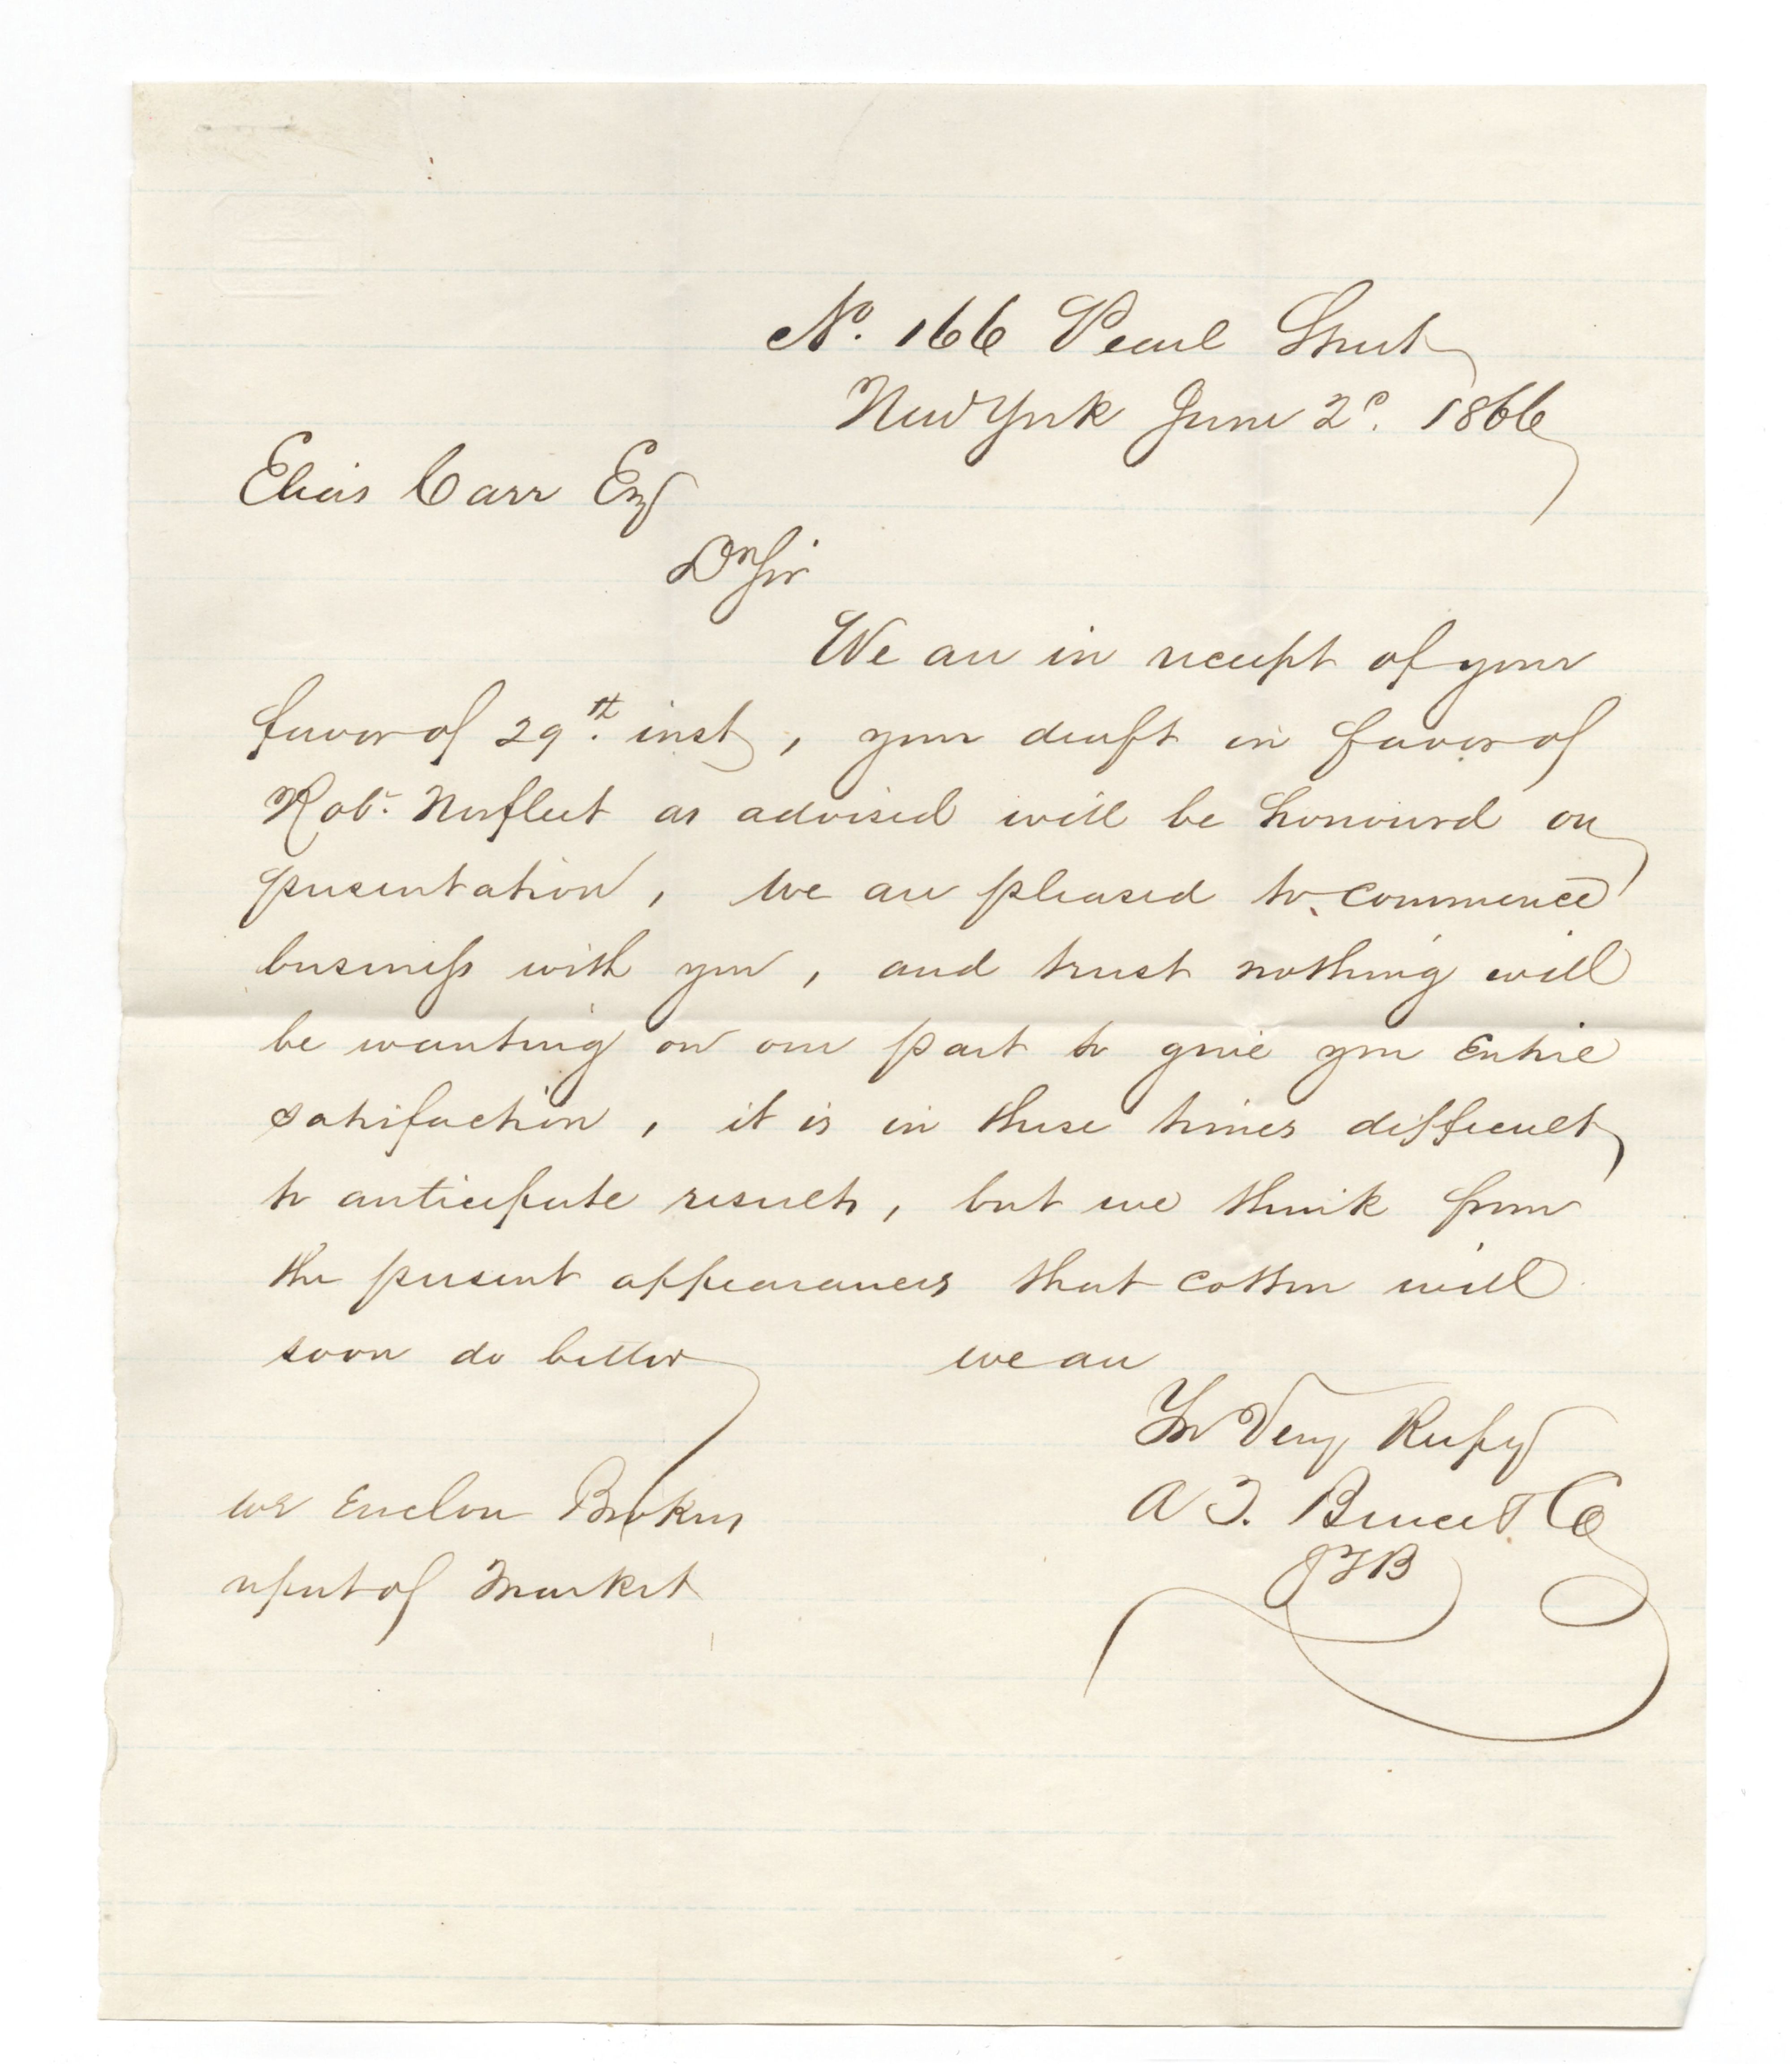 No. 166 Pearl Street
New York June 2d. 1866
Elias Carr Esq
Dr Sir
We are in receipt of your
favor of 29th. inst, your draft in favor of
Robt. Norfleet as advised will be honourd on
presentation, we are pleased to commence
business with you, and trust nothing will
be wanting on our part to give you Entire
satisfaction, it is in these times difficult
to anticipate results, but we think from
the present appearances that cotton will
soon do better we are
Yr Very Respy
A T. Bruce & Co
JTB
we Enclose Brokers
report of Market